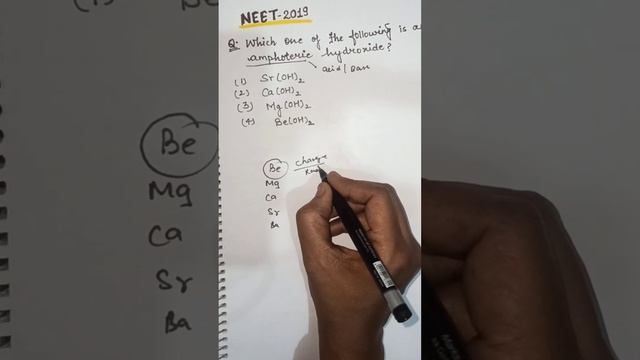 NEET-2019
Q. Which one of the following is a
amphoteric hydroxide?
acid/
(1) Sr(OH)₂
(2) Ca(OH)₂
(3) Mg(OH)₂
(4) Be(OH)₂
Be charge
Mg
Ca
Sr
Ba
Be
Mg
Ca
Sr
Ba